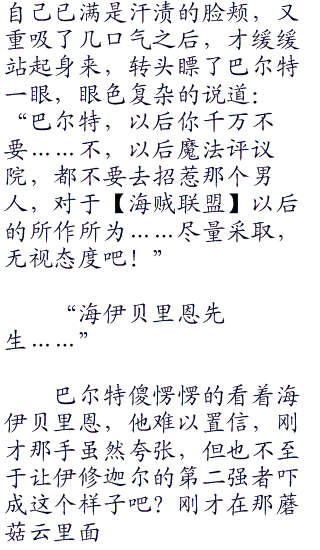 自己已满是汗渍的脸颊，又
重吸了几口气之后，才缓缓
站起身来，转头瞟了巴尔特
一眼，眼色复杂的说道：
“巴尔特，以后你千万不
要……不，以后魔法评议
院，都不要去招惹那个男
人，对于【海贼联盟】以后
的所作所为……尽量采取，
无视态度吧！”
“海伊贝里恩先
生……”
巴尔特傻愣愣的看着海
伊贝里恩，他难以置信，刚
才那手虽然夸张，但也不至
于让伊修迦尔的第二强者吓
成这个样子吧？刚才在那蘑
菇云里面